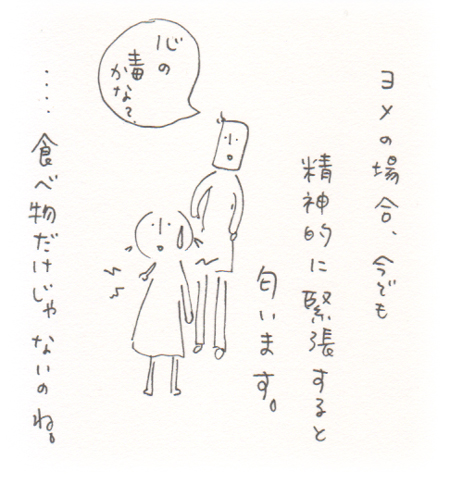 ヨメの場合、今でも
精神的に緊張すると
匂います。
心の
毒
かな？
‥‥食べ物だけじゃないのね。